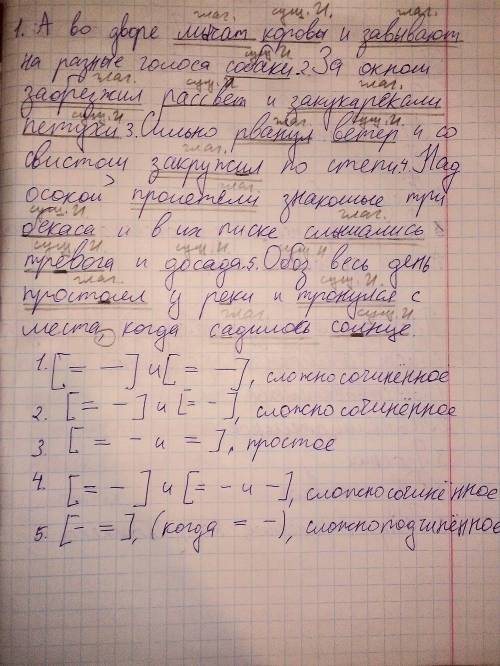 глаг. сущ. И. глаг.
1. А во дворе мычат коровы и завывают
сущ. И.
на разные голоса собаки. 2. За окном
глаг. сущ. И. глаг.
забрезжил рассвет и закукарекали
сущ. И. глаг. сущ. И.
петухи. 3. Сильно рванул ветер и со
глаг.
свистом закружил по степи. 4. Над
глаг.
осокой пролетели знакомые три
сущ. И. глаг.
бекаса и в их писке слышались
сущ. И. сущ. И. сущ. И.
тревога и досада. 5. Обоз весь день
глаг. глаг.
простоял у реки и тронулся с
глаг. сущ. И.
места, когда садилось солнце.
1. [= —] и [= —], сложносочинённое
2. [= —] и [= —], сложносочинённое
3. [= — и =], простое
4. [= —] и [= — и —], сложносочинённое
5. [— =], (когда = —), сложноподчинённое